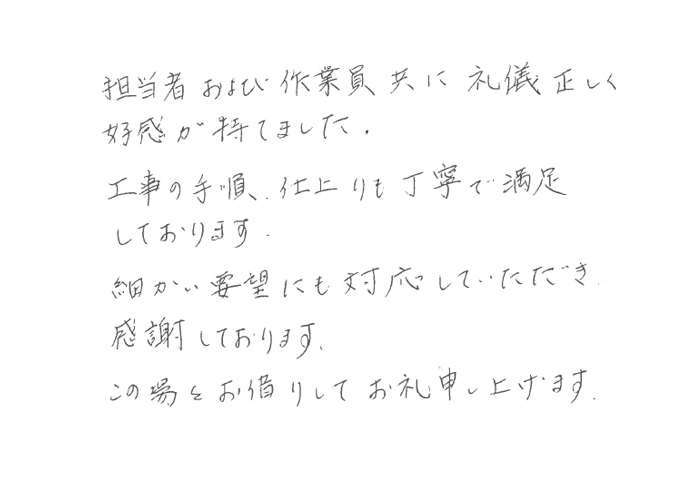 担当者および作業員共に礼儀正しく
好感が持てました.
工事の手順、仕上りも丁寧で満足
しております.
細かい要望にも対応していただき.
感謝しております、
この場をお借りしてお礼申し上げます.